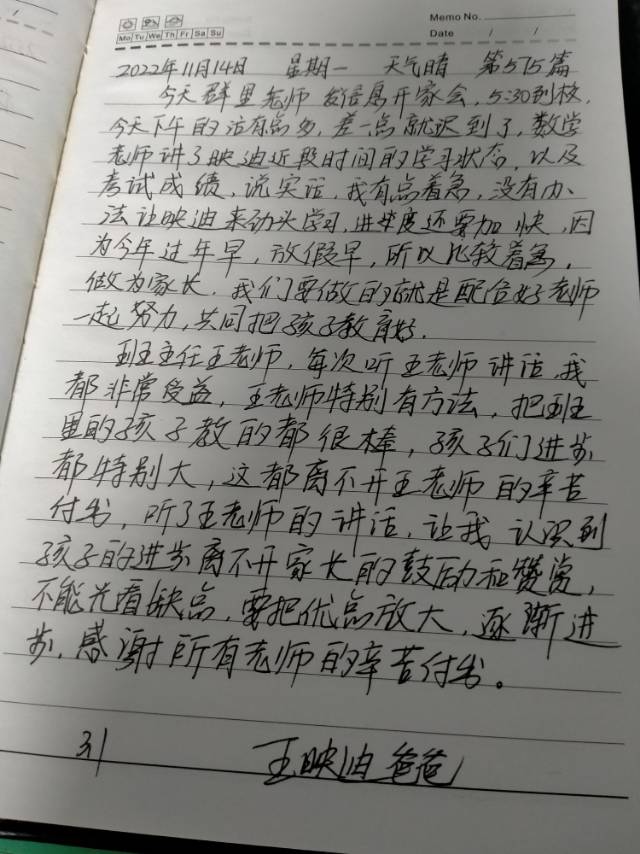 Memo No.
Mo Tu We Th Fr Sa Su
Date / /
2022年11月14日 星期一 天气晴 第575篇
今天群里老师发信息开家会，5:30到校，
今天下午的活有点多，差一点就迟到了，数学
老师讲了映迪近段时间的学习状态，以及
考试成绩，说实话，我有点着急，没有办
法让映迪来劲头学习，进度还要加快，因
为今年过年早，放假早，所以比较着急，
做为家长，我们要做的就是配合好老师
一起努力，共同把孩子教育好.
班主任王老师，每次听王老师讲话，我
都非常受益，王老师特别有方法，把班
里的孩子教的都很棒，孩子们进步
都特别大，这都离不开王老师的辛苦
付出，听了王老师的讲话，让我认识到
孩子的进步离不开家长的鼓励和赞赏，
不能光看缺点，要把优点放大，逐渐进
步，感谢所有老师的辛苦付出。
31 王映迪爸爸